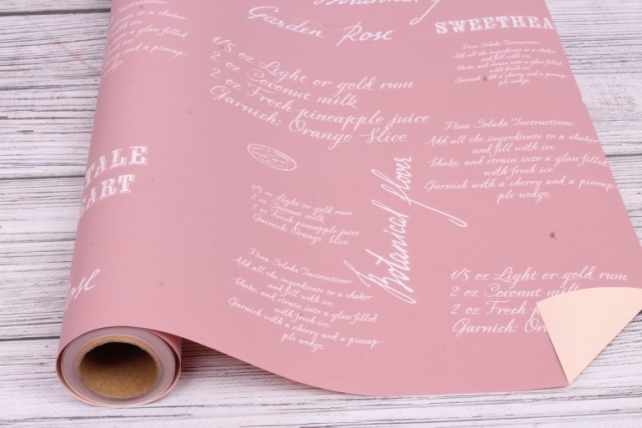 Botanical
Garden Rose
SWEETHEA
1/5 oz Light or gold rum
2 oz Coconut milk
2 oz Fresh pineapple juice
Garnich: Orange Slice
Pina Colada Instructions:
Add all the ingredients to a shaker
and fill with ice.
Shake, and strain into a glass filled
with fresh ice.
Garnish with a cherry and a pineap-
ple wedge.
TALE
ART
Botanical floor
1/5 oz Light or gold rum
2 oz Coconut milk
2 oz Fresh pineapple juice
Garnich: Orange Slice
Pina Colada Instructions:
Add all the ingredients to a shaker
and fill with ice.
Shake, and strain into a glass filled
with fresh ice.
Garnish with a cherry and a pineap-
ple wedge.
1/5 oz Light or gold rum
2 oz Coconut milk
2 oz Fresh
Garnich: Or